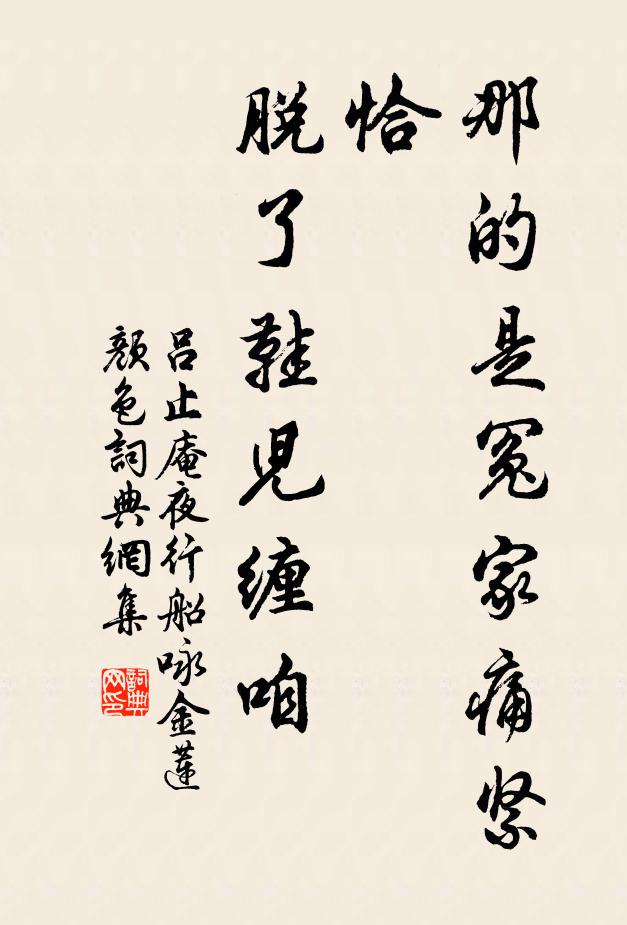 那的是冤家痛紧
恰
脱了鞋児缠咱
吕止庵夜行船咏金莲
颜色詞典網集
詞典
网印